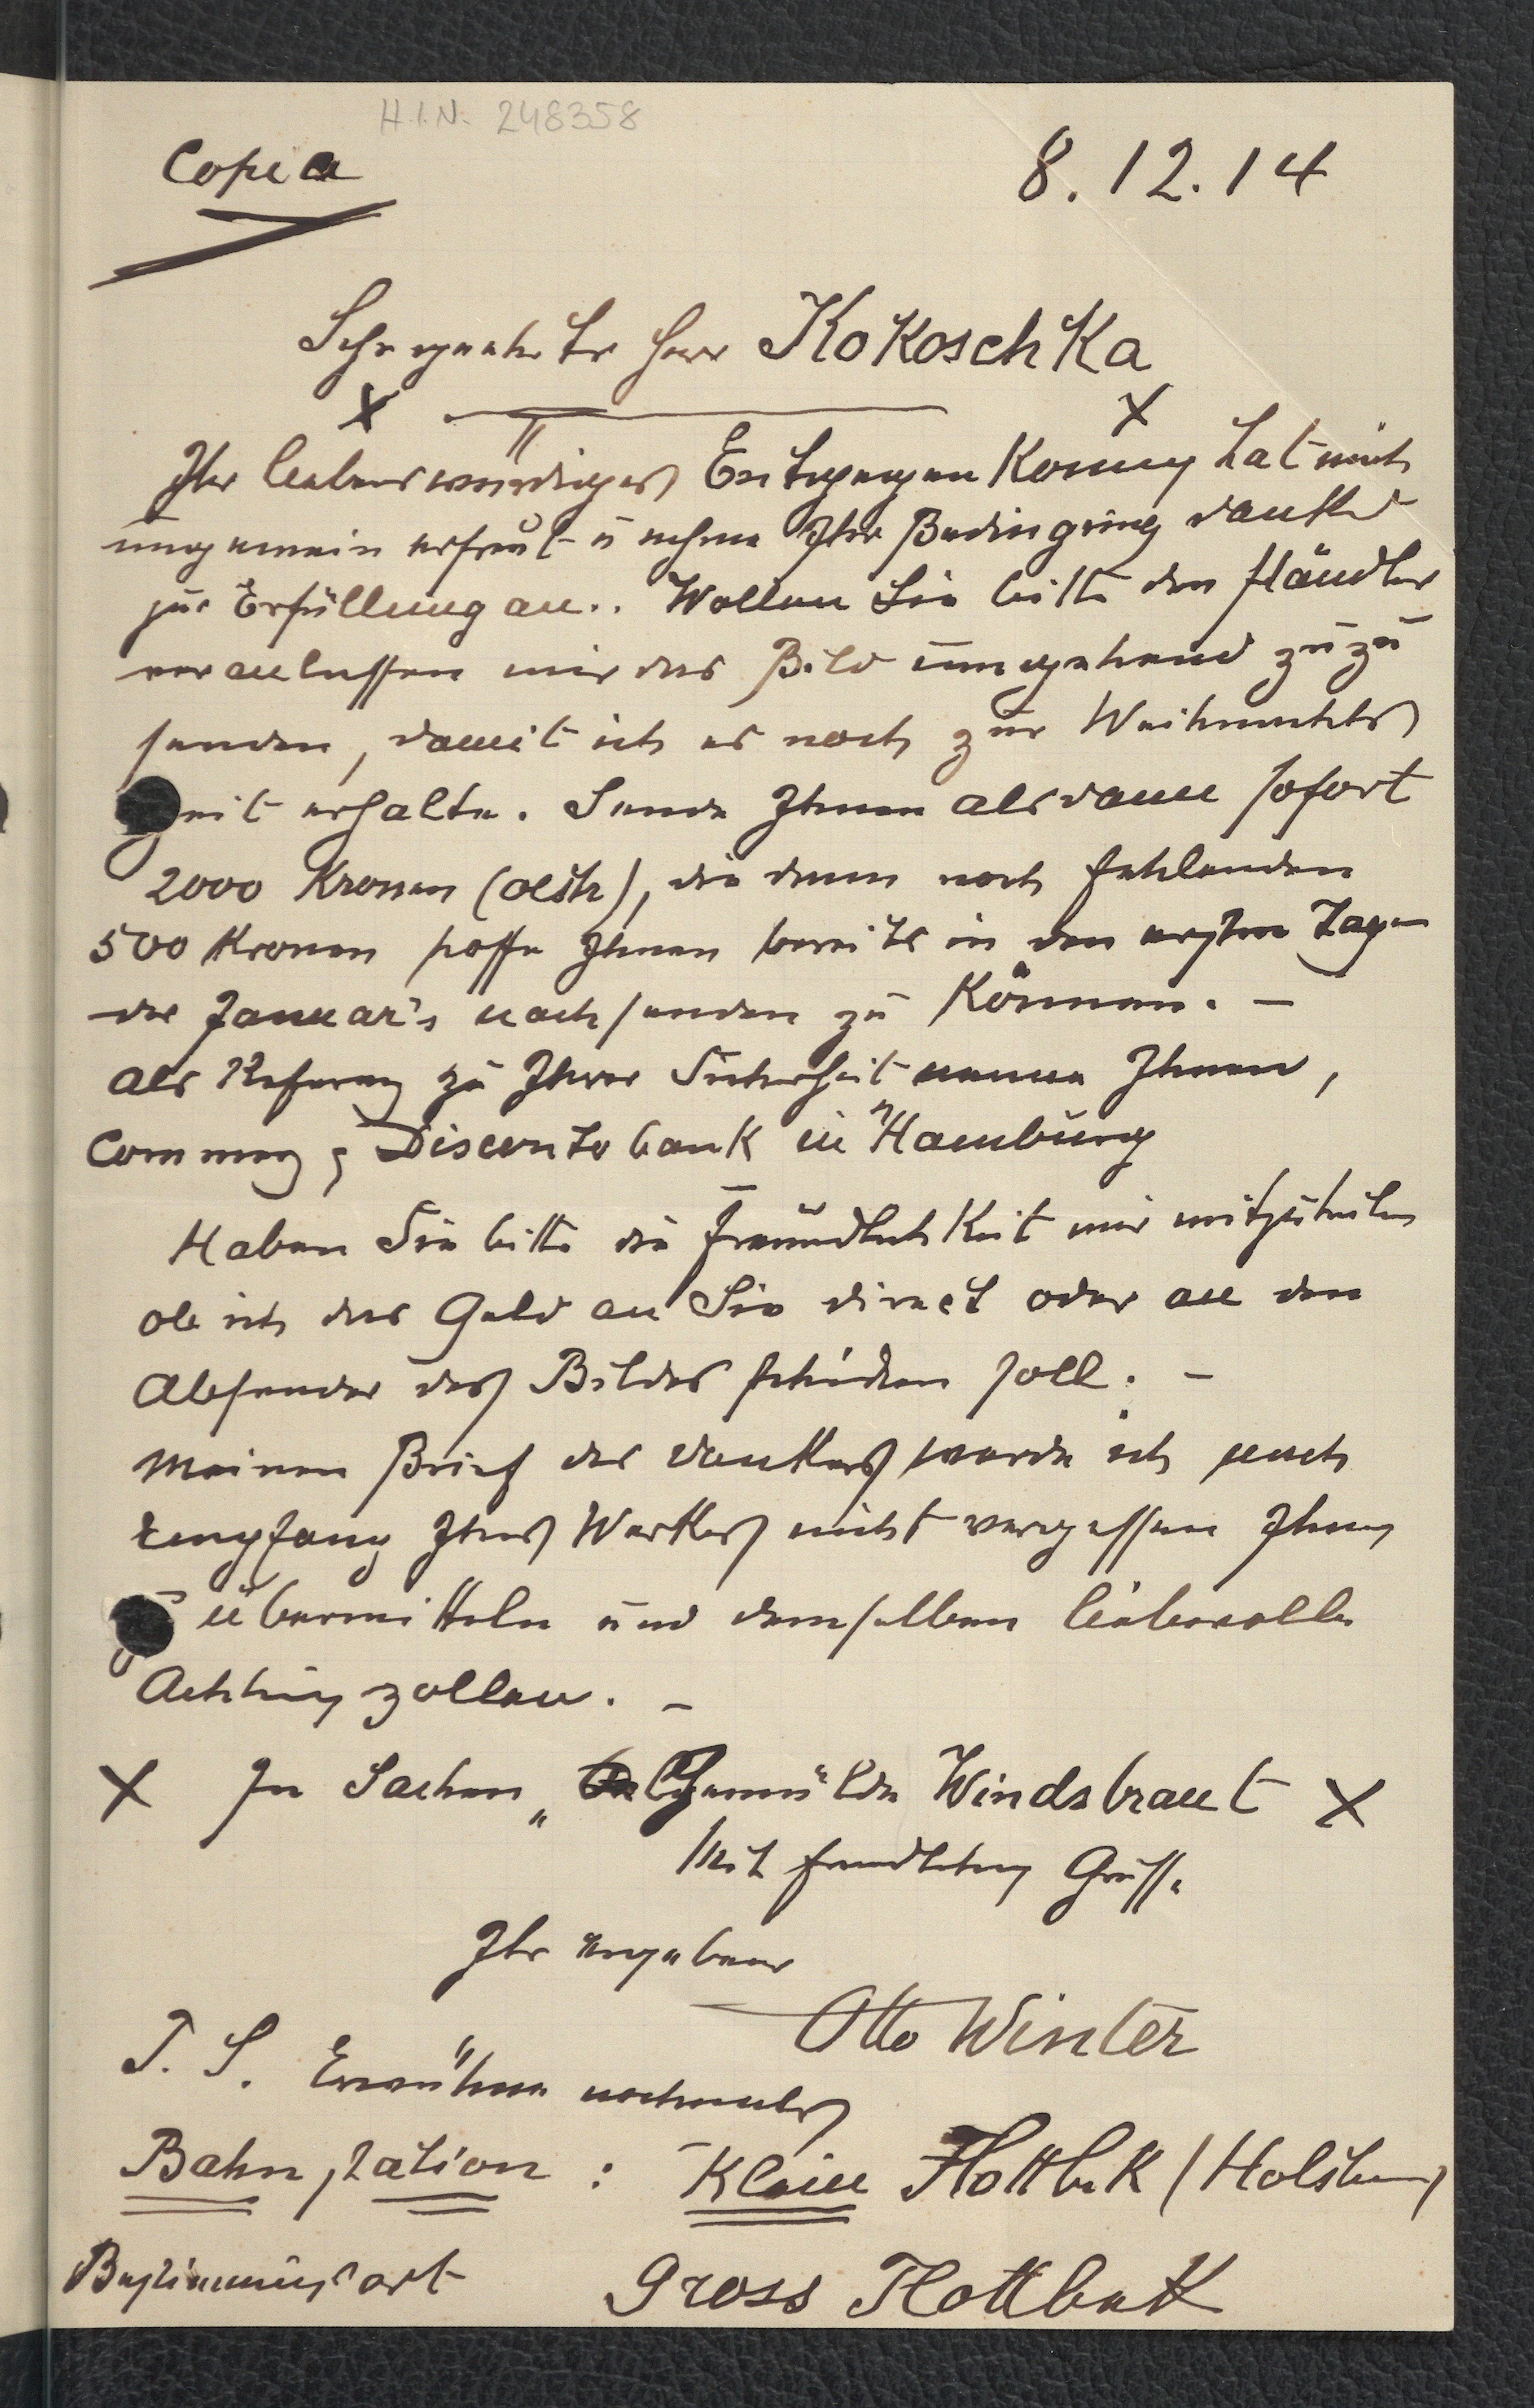 H.I.N. 248358
Copia
8.12.14
Sehr geehrter Herr Kokoschka
Ihr liebenswürdiges Entgegenkommen hat mich
ungemein erfreut u nehme Ihre Bedingung dankend
zur Erfüllung an.. Wollen Sie bitte den Händler
veranlassen mir das Bild umgehend zuzu
senden, damit ich es noch zur Weihnachts
zeit erhalte. Sende Ihnen alsdann sofort
2000 Kronen (oestr), die dann noch fehlenden
500 Kronen hoffe Ihnen bereits in den ersten Tagen
des Januar's nachsenden zu können. –
Als Referenz zu Ihrer Sicherheit nenne Ihnen,
Commerz & Discontobank in Hamburg
Haben Sie bitte die Freundlichkeit mir mitzuteilen
ob ich das Geld an Sie direct oder an den
Absender des Bildes schicken soll. –
Meinen Brief des Dankes werde ich nach
Empfang Ihres Werkes nicht vergessen Ihnen
zu übermitteln und demselben liebevolle
Achtung zollen. –
X In Sachen „ Gemälde Windsbraut X
Mit freundlichen Grüssen
Ihr ergebener
Otto Winter
P.S. Erwähne nochmals
Bahnstation : Klein Flottbek (Holstein)
Bestimmungsort Gross Flottbek